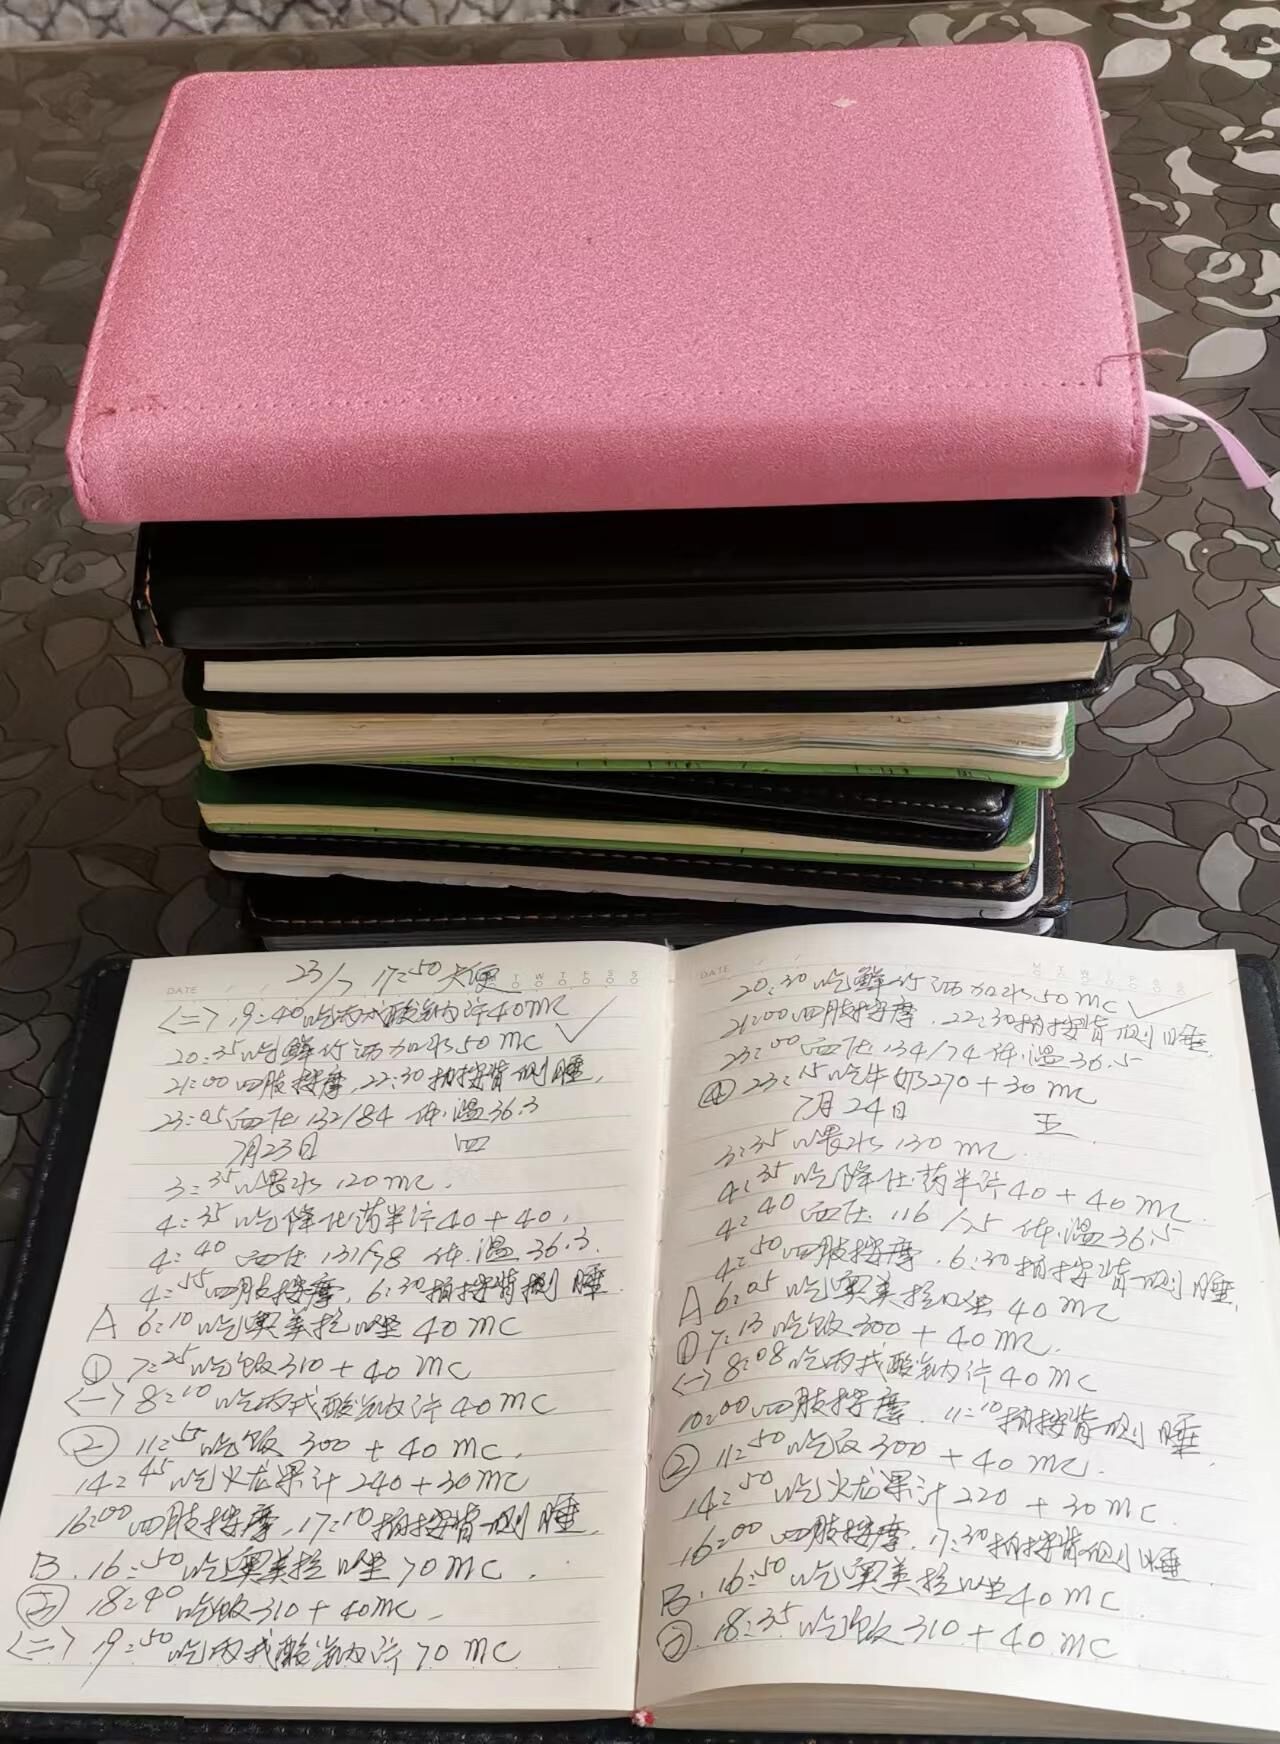 23/7 17=50大便
DATE
T W T F S S
<二> 19=40吃丙戊酸钠汁40mc
20=35吃鲜竹沥加水50mc
21=00四肢按摩,22=30拍按背侧睡,
23=05血压132/84 体温36.3
7月23日 四
3=35喂水120mc.
4=35吃降压药半片40+40,
4=40 血压131/98 体温36.3.
4=55四肢按摩,6=30拍按背侧睡
A 6=10吃奥美拉唑40mc
① 7=25吃饭310+40mc
<一> 8=10吃丙戊酸钠汁40mc
② 11=55吃饭300+40mc,
14=45吃火龙果汁240+30mc
16=00四肢按摩,17=10拍按背侧睡,
B.16=50吃奥美拉唑70mc.
③ 18=40吃饭310+40mc,
<二> 19=50吃丙戊酸钠汁70mc
DATE
M T W T F S S
20=30吃鲜竹沥加水50mc
21=00四肢按摩,22=30拍按背侧睡,
23=00血压134/74体温36.5
④ 23=15吃牛奶270+30mc
7月24日 五.
3=35喂水130mc.
4=35吃降压药半片40+40mc.
4=40 血压116/75 体温36.5
4=50四肢按摩,6=30拍按背侧睡,
A 6=05吃奥美拉唑40mc
① 7=13吃饭300+40mc.
<一> 8=08吃丙戊酸钠汁40mc
10=00四肢按摩,11=10拍按背侧睡,
② 11=50吃饭300+40mc.
14=50吃火龙果汁220+30mc.
16=00四肢按摩,17=30拍按背侧睡.
B.16=50吃奥美拉唑40mc
③ 18=35吃饭310+40mc